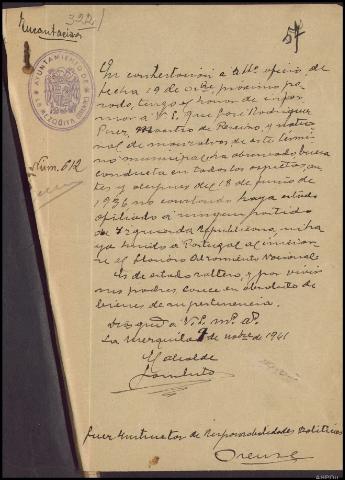 Incautacion
322
57
AYUNTAMIENTO DE
Núm. 612
En contestación a su oficio, de
fecha 19 de Obre próximo pa-
sado, tengo el honor de infor-
mar a V.S. que José Rodriguez
Perez, Maestro de Pereiro, y natu-
ral de de este térmi-
no municipal, ha observado buena
conducta en todos los aspectos an-
tes y despues del 18 de Junio de
1936 no constando haya estado
afiliado a ningun partido
de Izquierda Republicana,
ya huido a Portugal al iniciar-
se el Glorioso Alzamiento Nacional
Es de estado soltero, y por vivir
sus padres, carece en absoluto de
bienes de su pertenencia.
Dios gue a V.S. ms. as.
La Mezquita 7 de nobre de 1941
El Alcalde
Juez Instructor de Responsabilidades Politicas
Orense